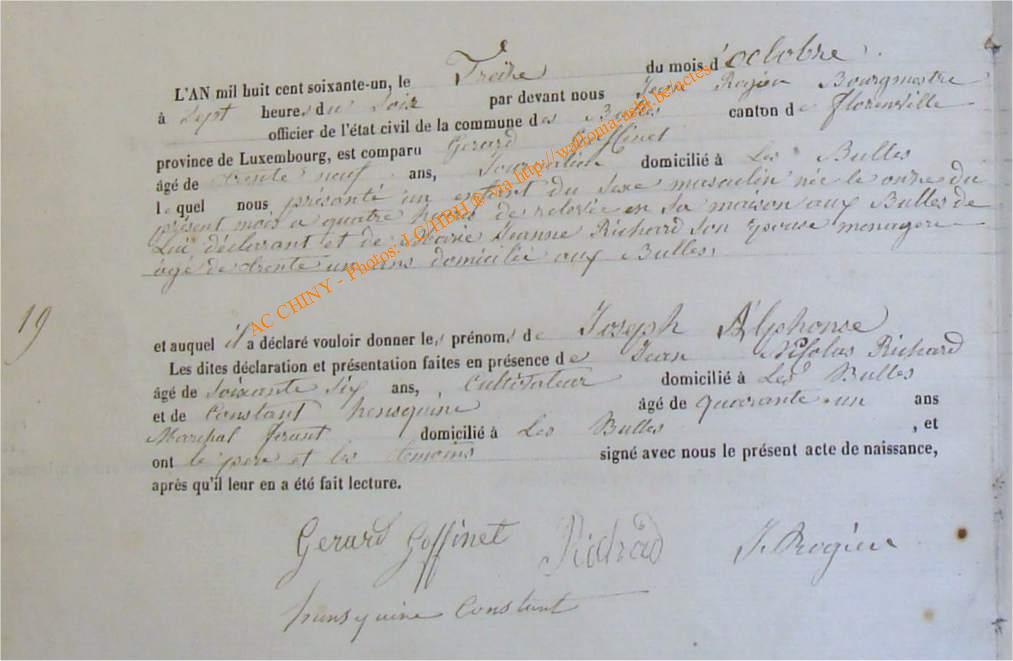 L'AN mil huit cent soixante-un, le Treize du mois d'octobre.
à Sept heures du Soir par devant nous Jean Rogier Bourgmestre
officier de l'état civil de la commune des Bulles canton de Florenville
province de Luxembourg, est comparu Gerard Goffinet
âgé de trente neuf ans, Journalier domicilié à Les Bulles
lequel nous présenté un enfant du Sexe masculin née le onze du
présent mois a quatre heures de relevée en Sa maison aux Bulles de
Lui déclarant et de Marie Jeanne Richard Son epouse menagere
âgé de trente un ans domiciliée aux Bulles,
19
et auquel il a déclaré vouloir donner les prénoms de Joseph Alphonse
Les dites déclaration et présentation faites en présence de Jean Nicolas Richard
âgé de Soixante Six ans, Cultivateur domicilié à Les Bulles
et de Constant hensquine âgé de quarante un ans
Marechal ferant domicilié à Les Bulles, et
ont le pere et les temoins signé avec nous le présent acte de naissance,
après qu'il leur en a été fait lecture.
Gerard Goffinet Richard J. Rogier
hunsquine Constant
AC CHINY - Photos: J.G./HBH © via http://wallonia-asbl.be/actes